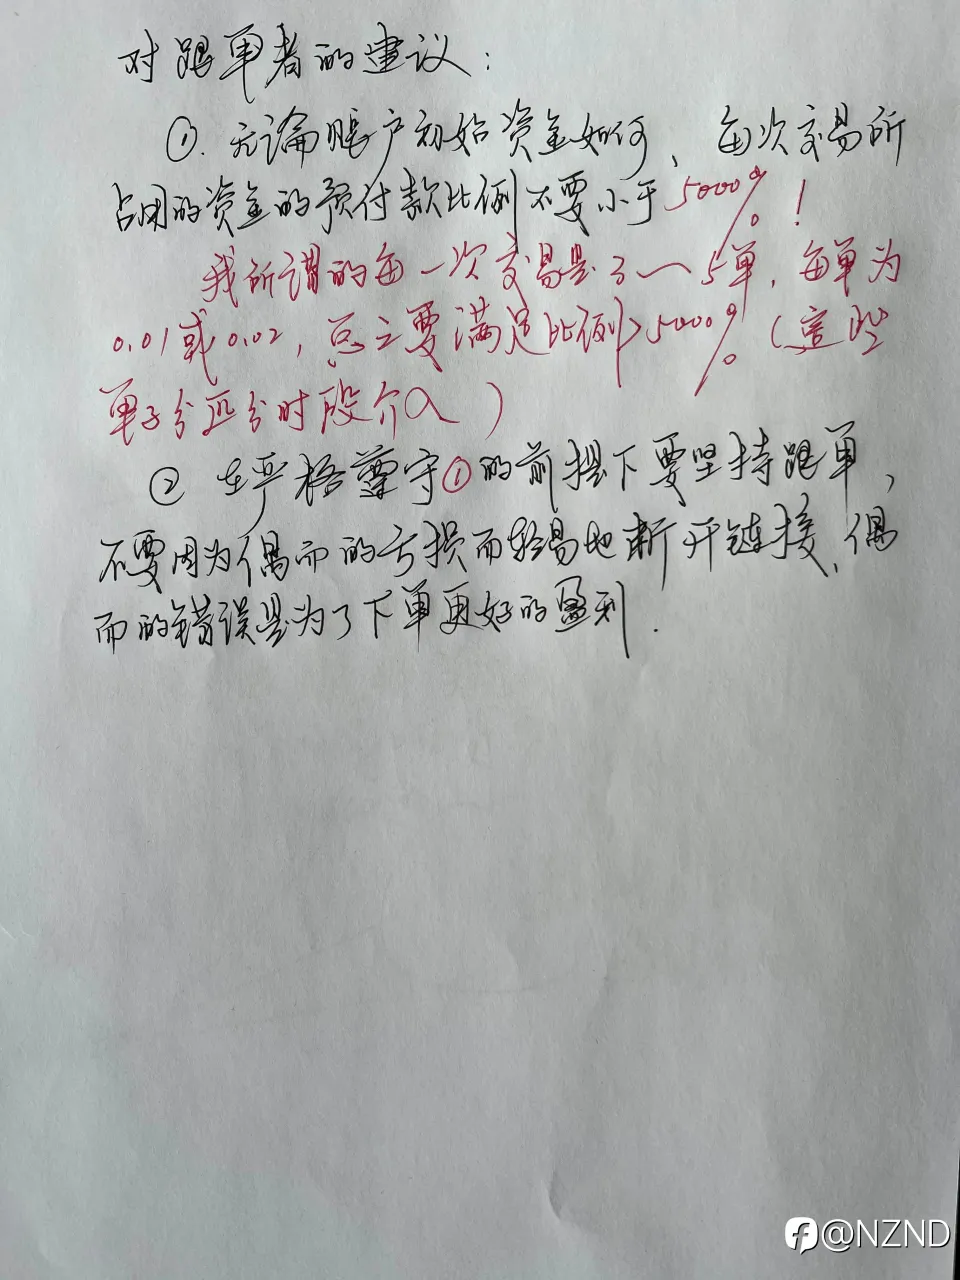 对跟单者的建议：
①. 无论账户初始资金如何，每次交易所
占用的资金的预付款比例不要小于5000%！
我所谓的每一次交易是3～5单，每单为
0.01或0.02，总之要满足比例>5000%（这些
单子分匹分时段介入）
② 在严格遵守①的前提下要坚持跟单，
不要因为偶而的亏损而轻易地断开链接，偶
而的错误是为了下单更好的盈利.
@NZND